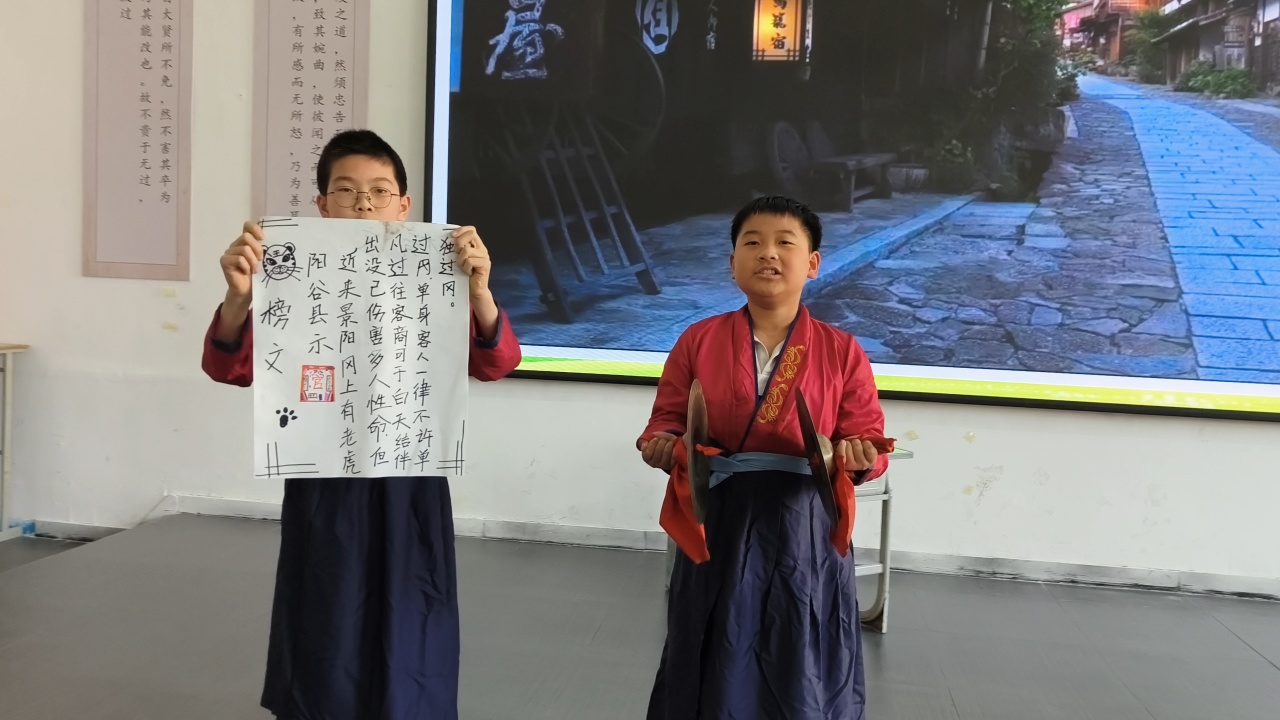 榜文
阳谷县示
近来景阳冈上有老虎
出没已伤害多人性命,但
凡过往客商可于白天结伴
过冈,单身客人一律不许单
独过冈。
大贤所不免,然不害其卒为
其能改也。故不贵于无过,
过
之道,然须忠告
致其婉曲,使彼闻之
有所感而无所怒,乃为善
馬籠宿